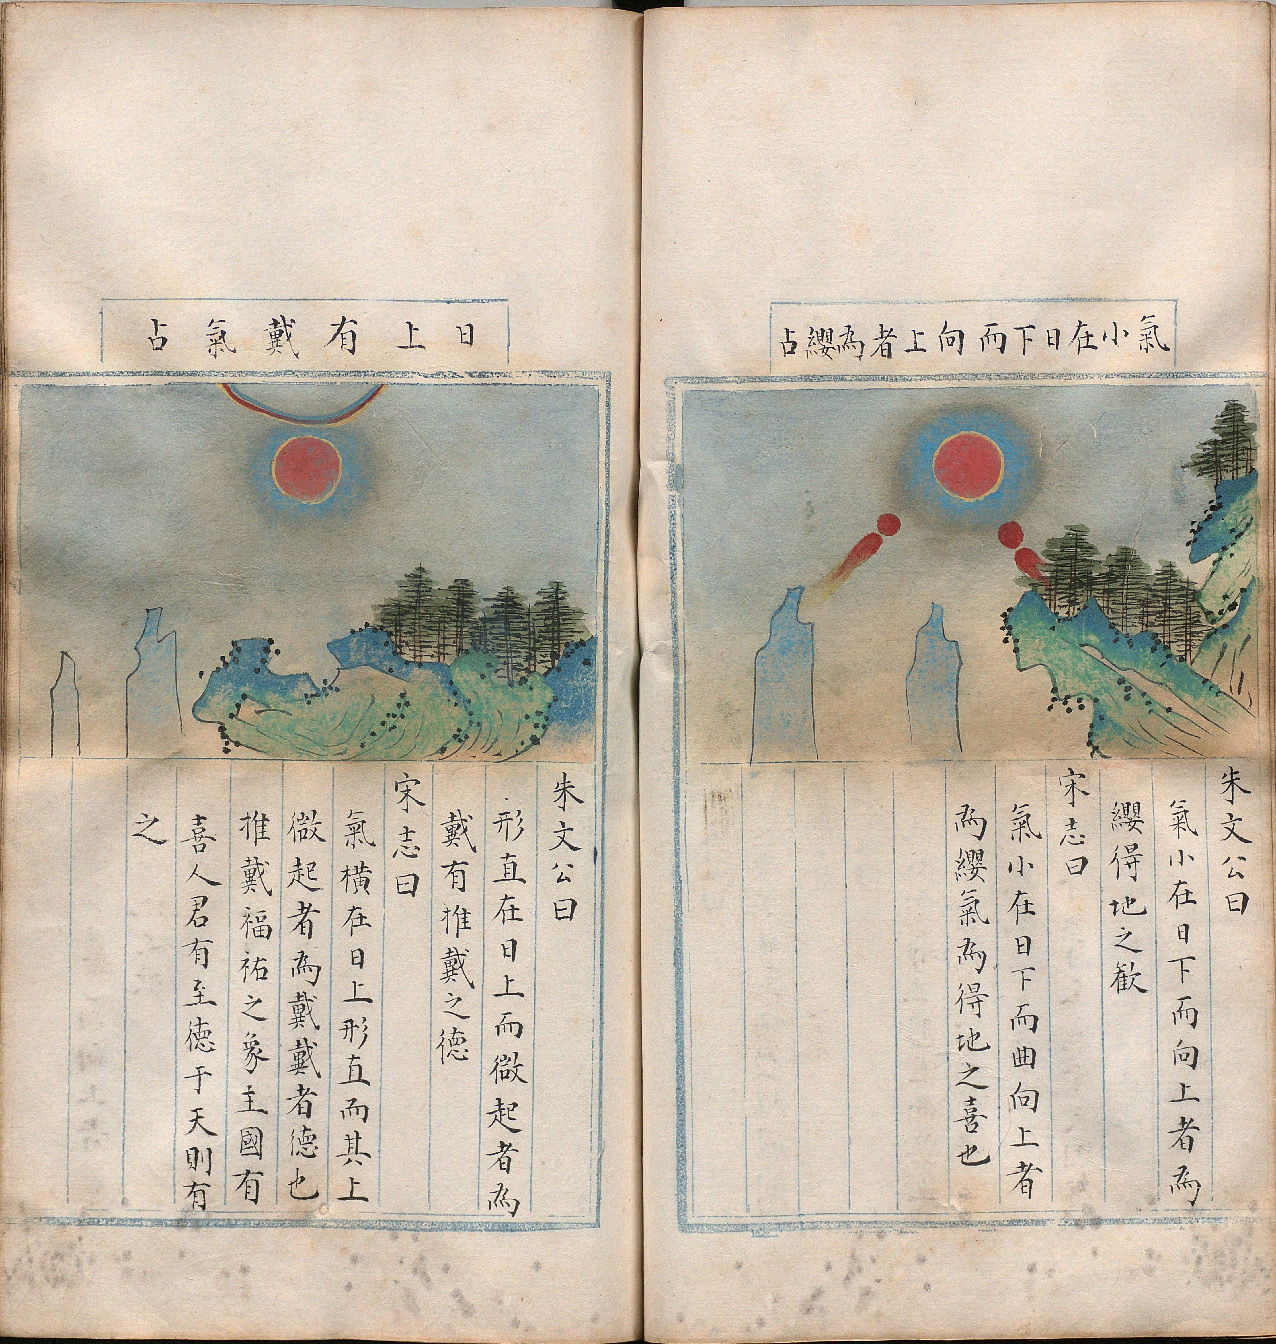 氣小在日下而向上者為纓占
朱文公曰
氣小在日下而向上者為
纓得地之歡
宋志曰
氣小在日下而曲向上者
為纓氣為得地之喜也
日上有戴氣占
朱文公曰
形直在日上而微起者為
戴有推戴之德
宋志曰
氣橫在日上形直而其上
微起者為戴戴者德也
推戴福祐之象主國有
喜人君有至德于天則有
之